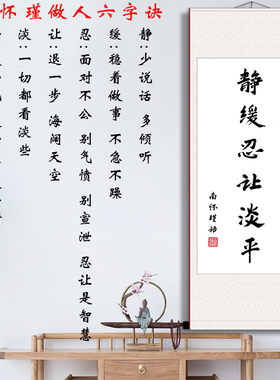 怀瑾做人六字诀
静:少说话 多倾听
缓:稳着做事 不急不躁
忍:面对不公 别气愤 别宣泄 忍让是智慧
让:退一步 海阔天空
淡:一切都看淡些
静缓忍让淡平
南怀瑾语